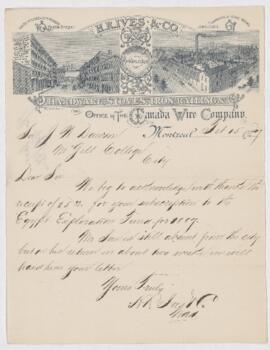 H.R. IVES & CO.
HARDWARE, STOVES, IRON RAILINGS &c.
OFFICE OF THE Canada Wire Company,
Montreal Feb 15
Sir J W Dawson
McGill College
City
Dear Sir
We beg to acknowledge with thanks the
receipt of $5 for your subscription to the
Egypt Exploration Fund for 1887.
Mr Ives is still absent from the city
but on his return in about two weeks we will
hand him your letter
Yours truly
H R Ives & Co